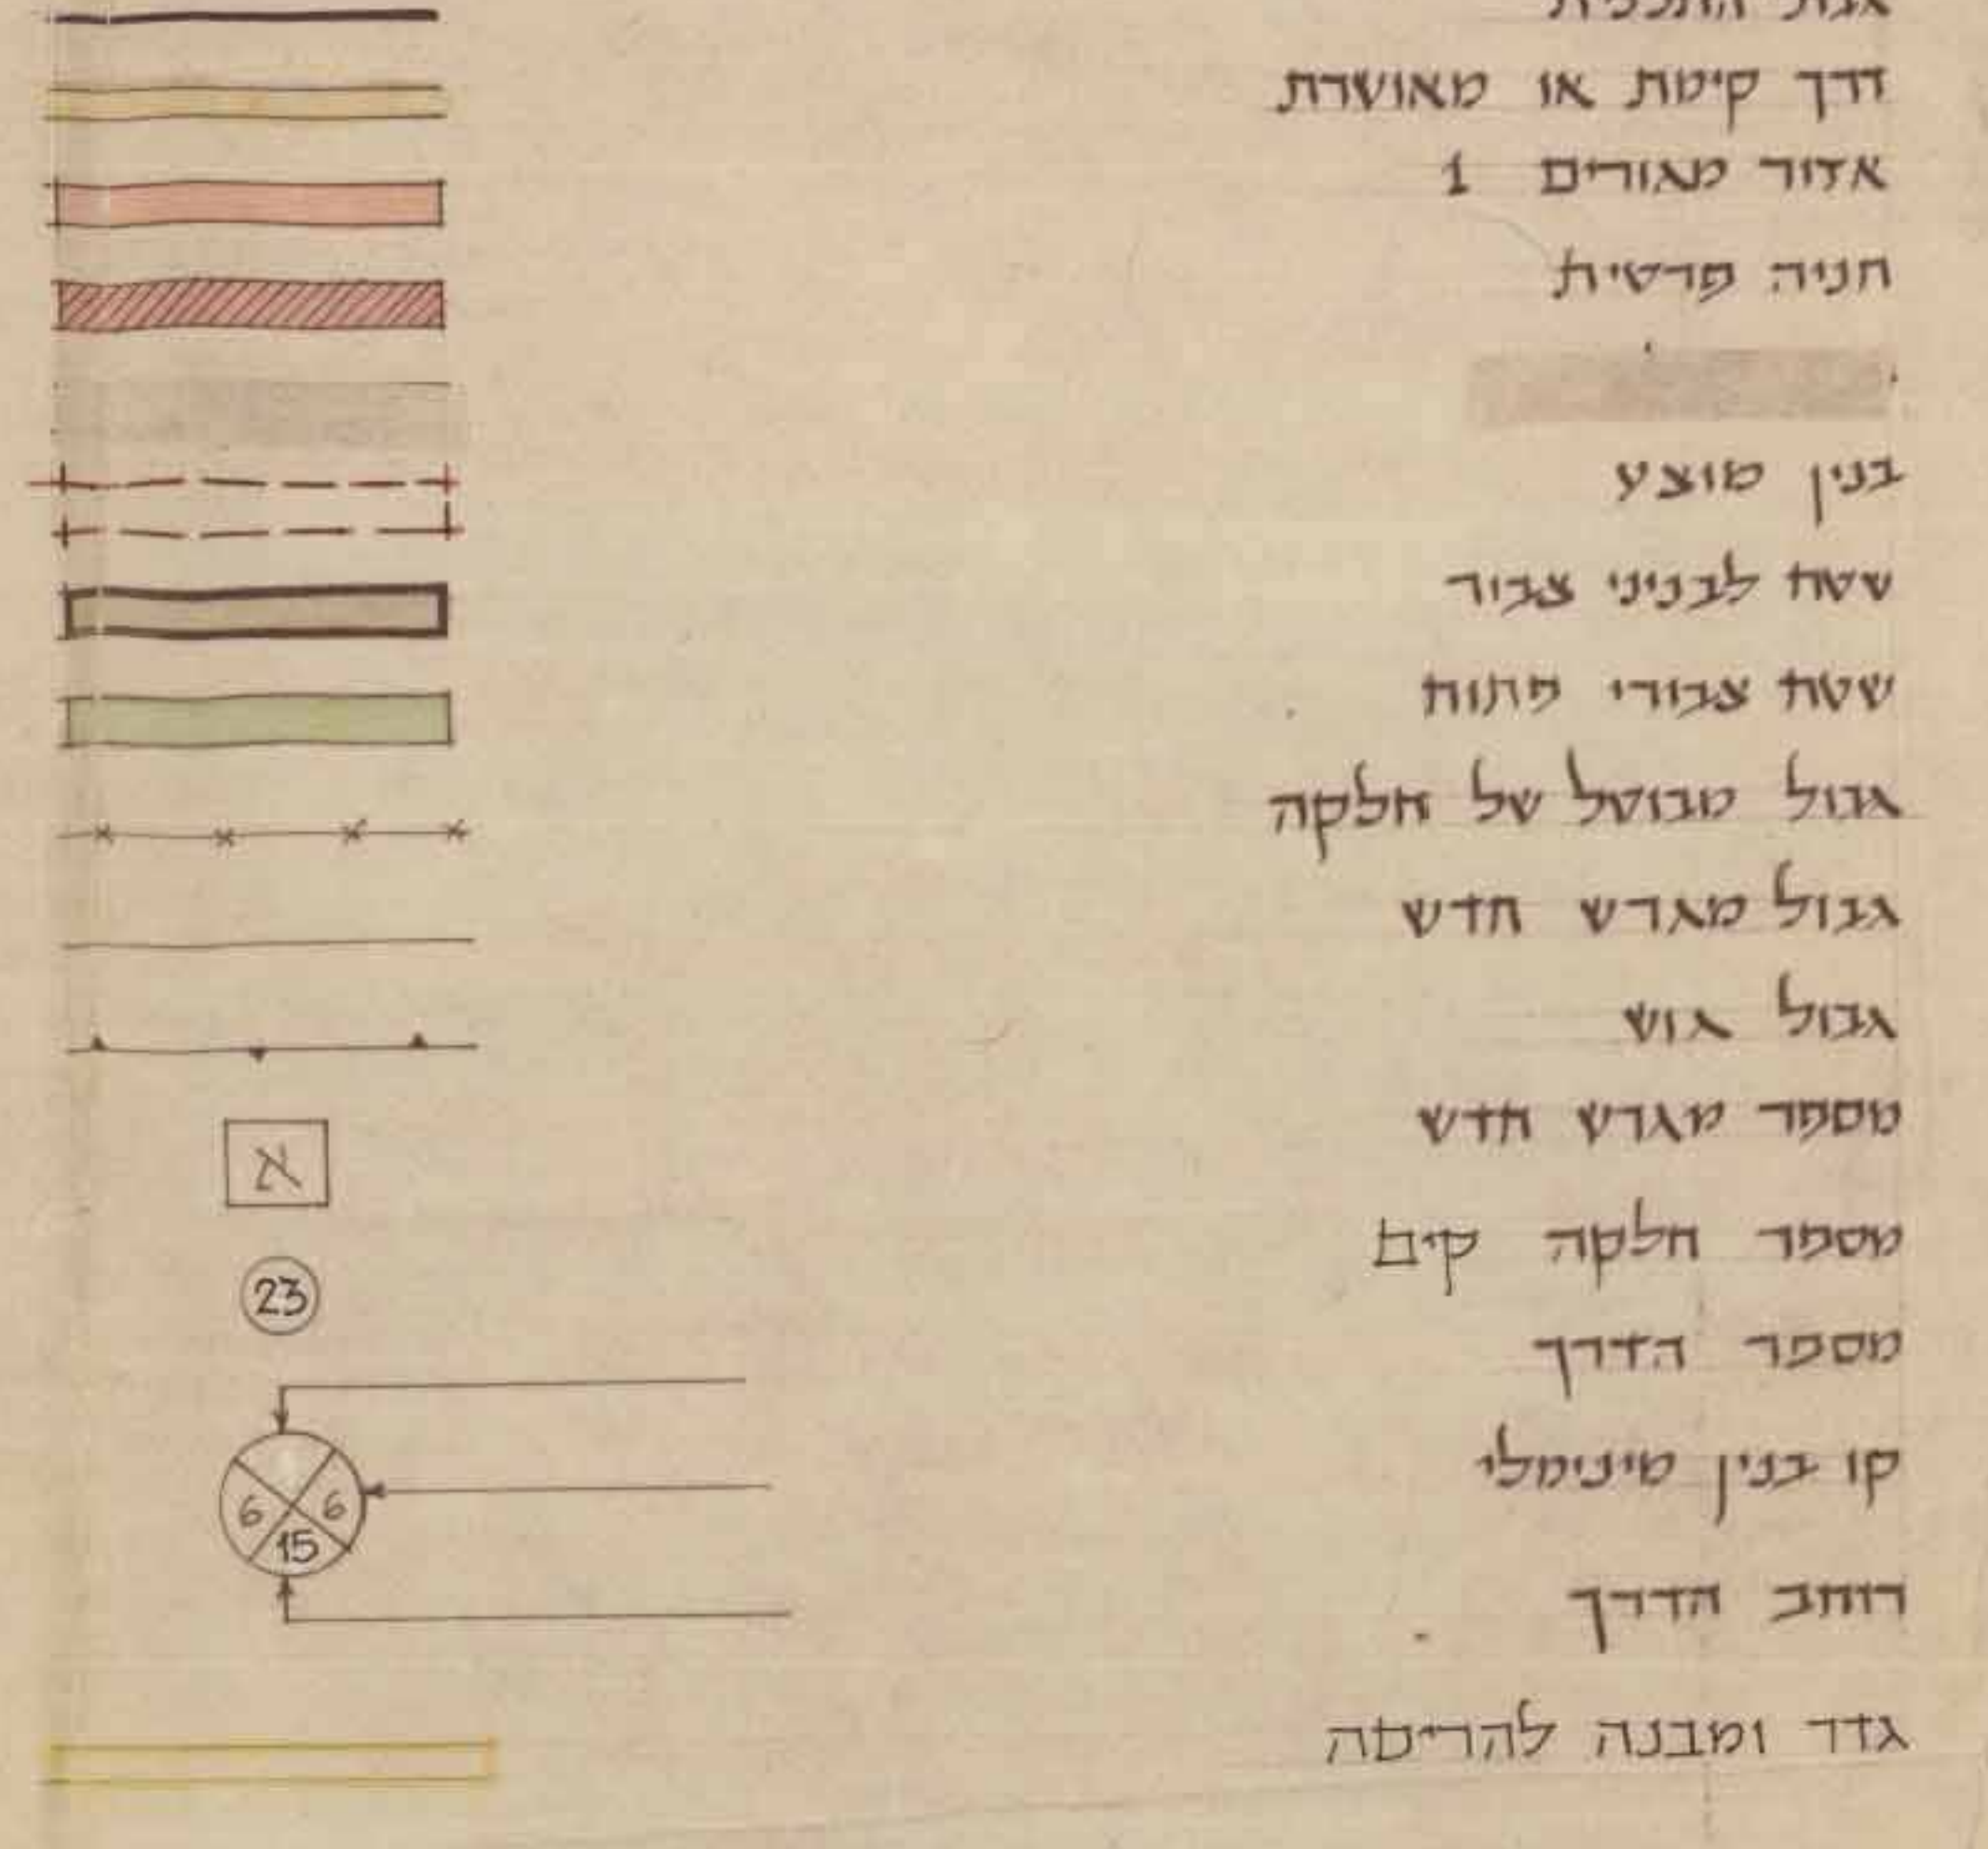 גבול התכנית
דרך קימת או מאושרת
אזור מגורים 1
חניה פרטית
בנין מוצע
שטח לבניני צבור
שטח צבורי פתוח
גבול מבוטל של חלקה
גבול מגרש חדש
גבול גוש
מספר מגרש חדש
א
מספר חלקה קים
23
מספר הדרך
קו בנין מינימלי
6 6
15
רוחב הדרך
גדר ומבנה להריסה